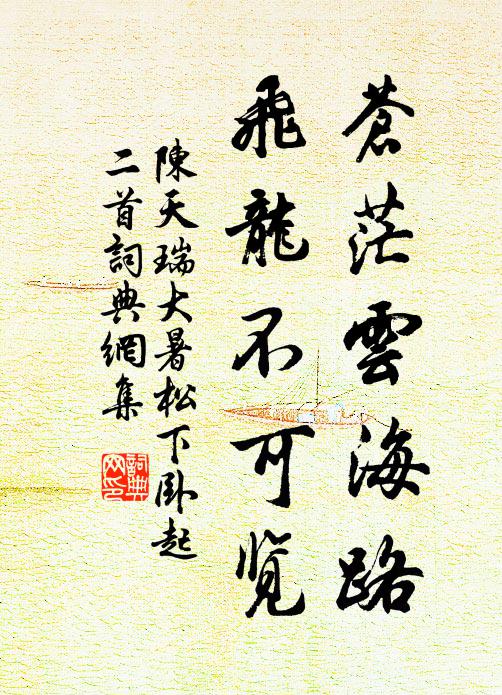 蒼茫雲海路
飛龍不可覽
陳天瑞大暑松下卧起
二首詞典網集
詞典網印